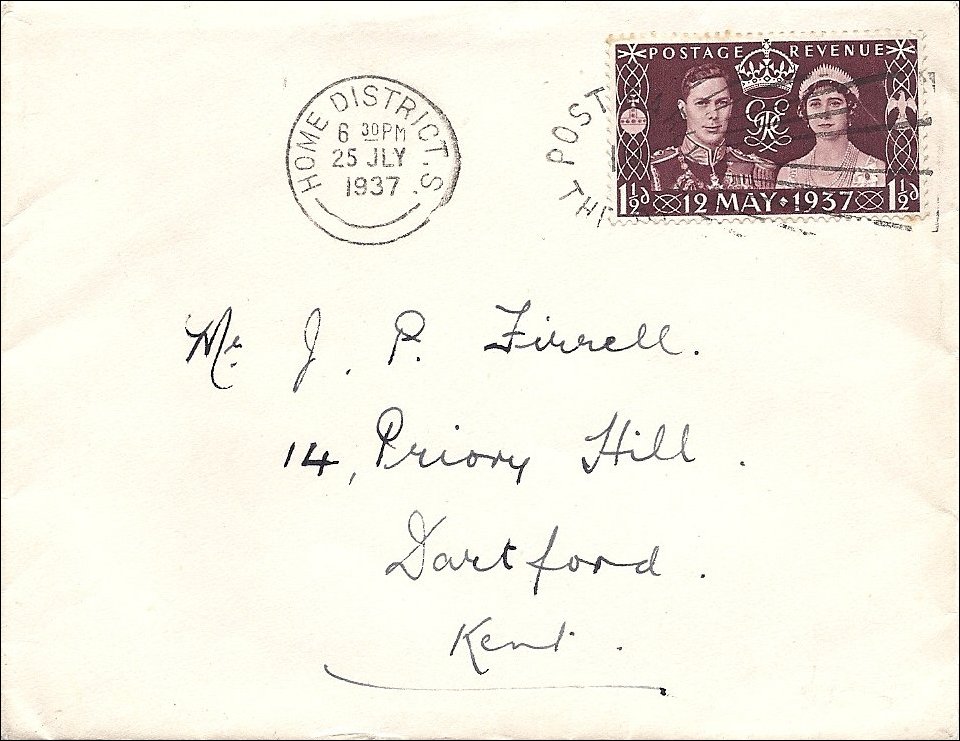 HOME DISTRICT. S.
6 30PM
25 JLY
1937
POST
TH
POSTAGE REVENUE
1½d 12 MAY · 1937 1½d
Mr. J. P. Firrell.
14, Priory Hill.
Dartford.
Kent.